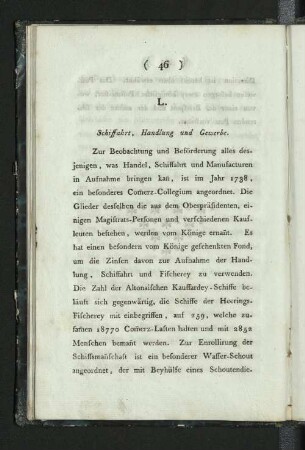 ( 46 )
L.
Schiffahrt, Handlung und Gewerbe.
Zur Beobachtung und Beförderung alles des-
jenigen, was Handel, Schiffahrt und Manufacturen
in Aufnahme bringen kan, ist im Jahr 1738,
ein besonderes Com̄erz-Collegium angeordnet. Die
Glieder desselben die aus dem Oberpräsidenten, ei-
nigen Magistrats-Personen und verschiedenen Kauf-
leuten bestehen, werden vom Könige ernan̄t. Es
hat einen besondern vom Könige geschenkten Fond,
um die Zinsen davon zur Aufnahme der Hand-
lung, Schiffahrt und Fischerey zu verwenden.
Die Zahl der Altonaischen Kauffardey-Schiffe be-
läuft sich gegenwärtig, die Schiffe der Heerings-
Fischerey mit einbegriffen, auf 259, welche zu-
sam̄en 18770 Com̄erz-Lasten halten und mit 2852
Menschen beman̄t werden. Zur Enrollirung der
Schiffsman̄schaft ist ein besonderer Wasser-Schout
angeordnet, der mit Beyhülfe eines Schoutendie-